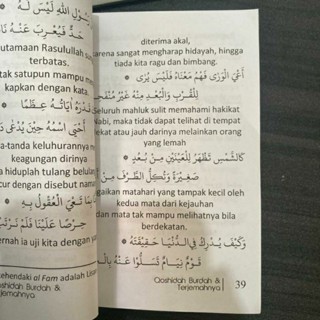 رَسُولِ اللهِ لَيْسَ لَهُ
حَدٌّ فَيُعْرِبَ عَنْهُ
utamaan Rasulullah
terbatas.
tak satupun mampu me
kapkan dengan kata.
قَدْرَهُ آيَاتُهُ عِظَمًا
أَحْيَى اسْمُهُ حِيْنَ يُدْعَى
a-tanda keluhurannya me
keagungan dirinya
a hiduplah tulang belulang
cur dengan disebut nama
تَعْيَى الْعُقُولُ بِهِ
حِرْصًا عَلَيْنَا فَلَمْ نَرْتَبْ
ernah ia uji kita dengan
ehendaki al Fam adalah Lisan
oshidah Burdah &
rjemahnya
diterima akal,
karena sangat mengharap hidayah, hingga
tiada kita ragu dan bimbang.
أَعْيَ الْوَرَى فَهْمُ مَعْنَاهُ فَلَيْسَ يُرَى
لِلْقُرْبِ وَالْبُعْدِ مِنْهُ غَيْرُ مُنْفَحِمِ
Seluruh mahluk sulit memahami hakikat
Nabi, maka tidak dapat telihat di tempat
dekat atau jauh darinya melainkan orang
yang lemah
كَالشَّمْسِ تَظْهَرُ لِلْعَيْنَيْنِ مِنْ بُعُدٍ
صَغِيْرَةً وَتُكِلُّ الطَّرْفَ مِنْ
Bagaikan matahari yang tampak kecil oleh
kedua mata dari kejauhan
dan mata tak mampu melihatnya bila
berdekatan.
وَكَيْفَ يُدْرِكُ فِي الدُّنْيَا حَقِيْقَتَهُ
قَوْمٌ نِيَامٌ تَسَلَّوْا عَنْهُ
Qoshidah Burdah &
Terjemahnya
39